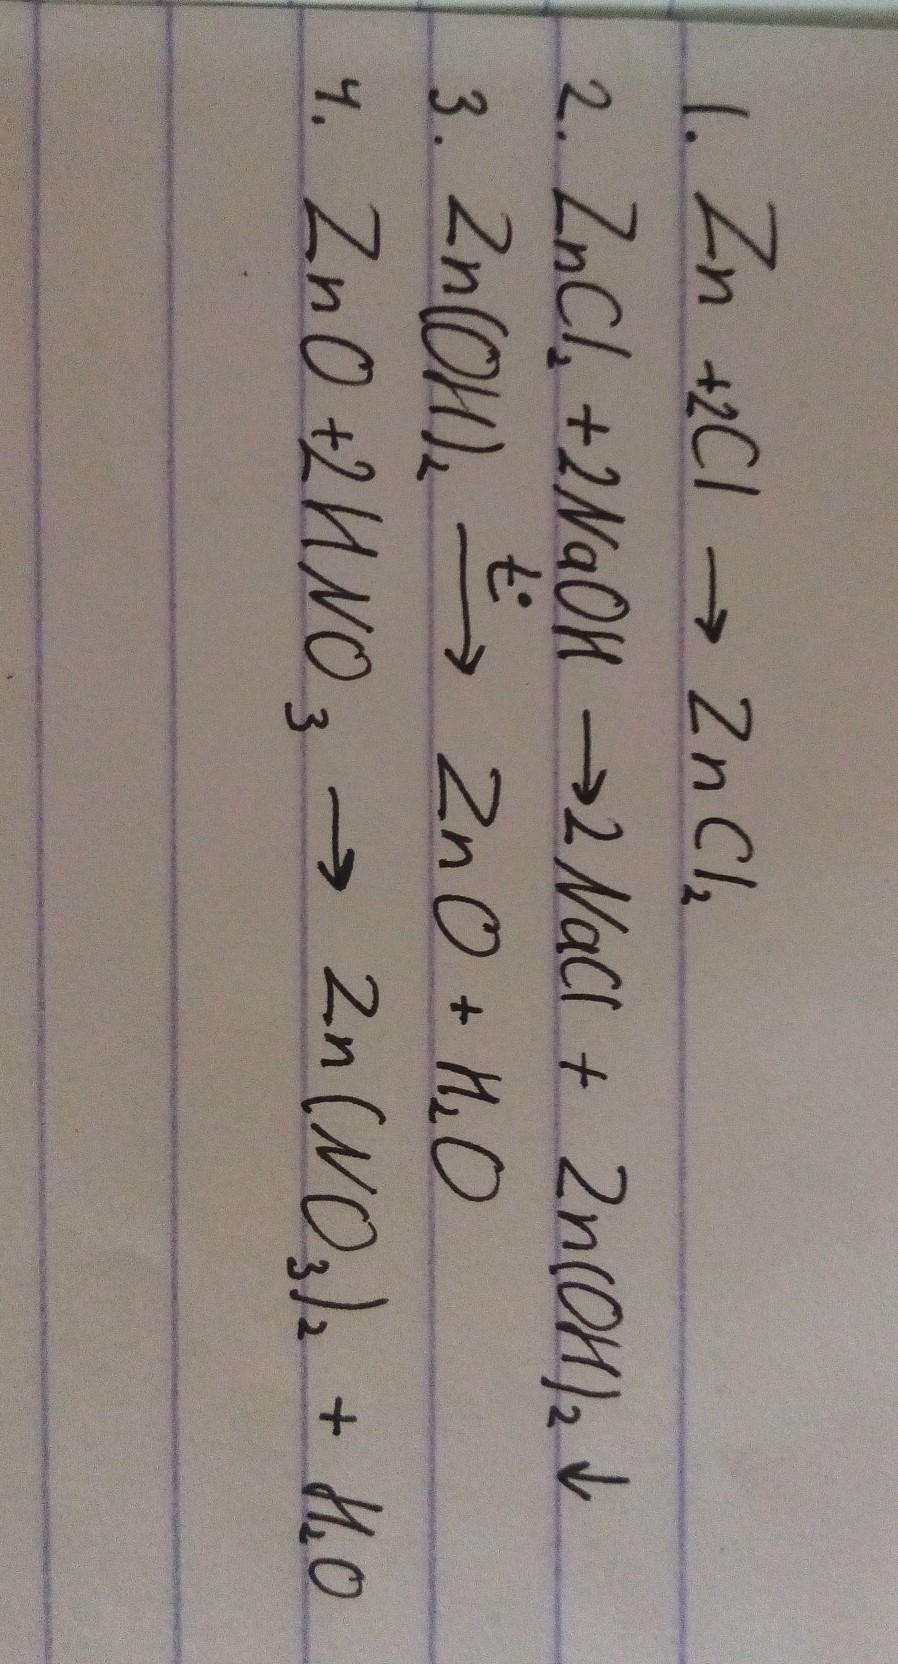 1. Zn +2Cl → ZnCl₂
2. ZnCl₂ +2NaOH →2NaCl + Zn(OH)₂ ↓
3. Zn(OH)₂ —t°→ ZnO + H₂O
4. ZnO +2HNO₃ → Zn(NO₃)₂ + H₂O